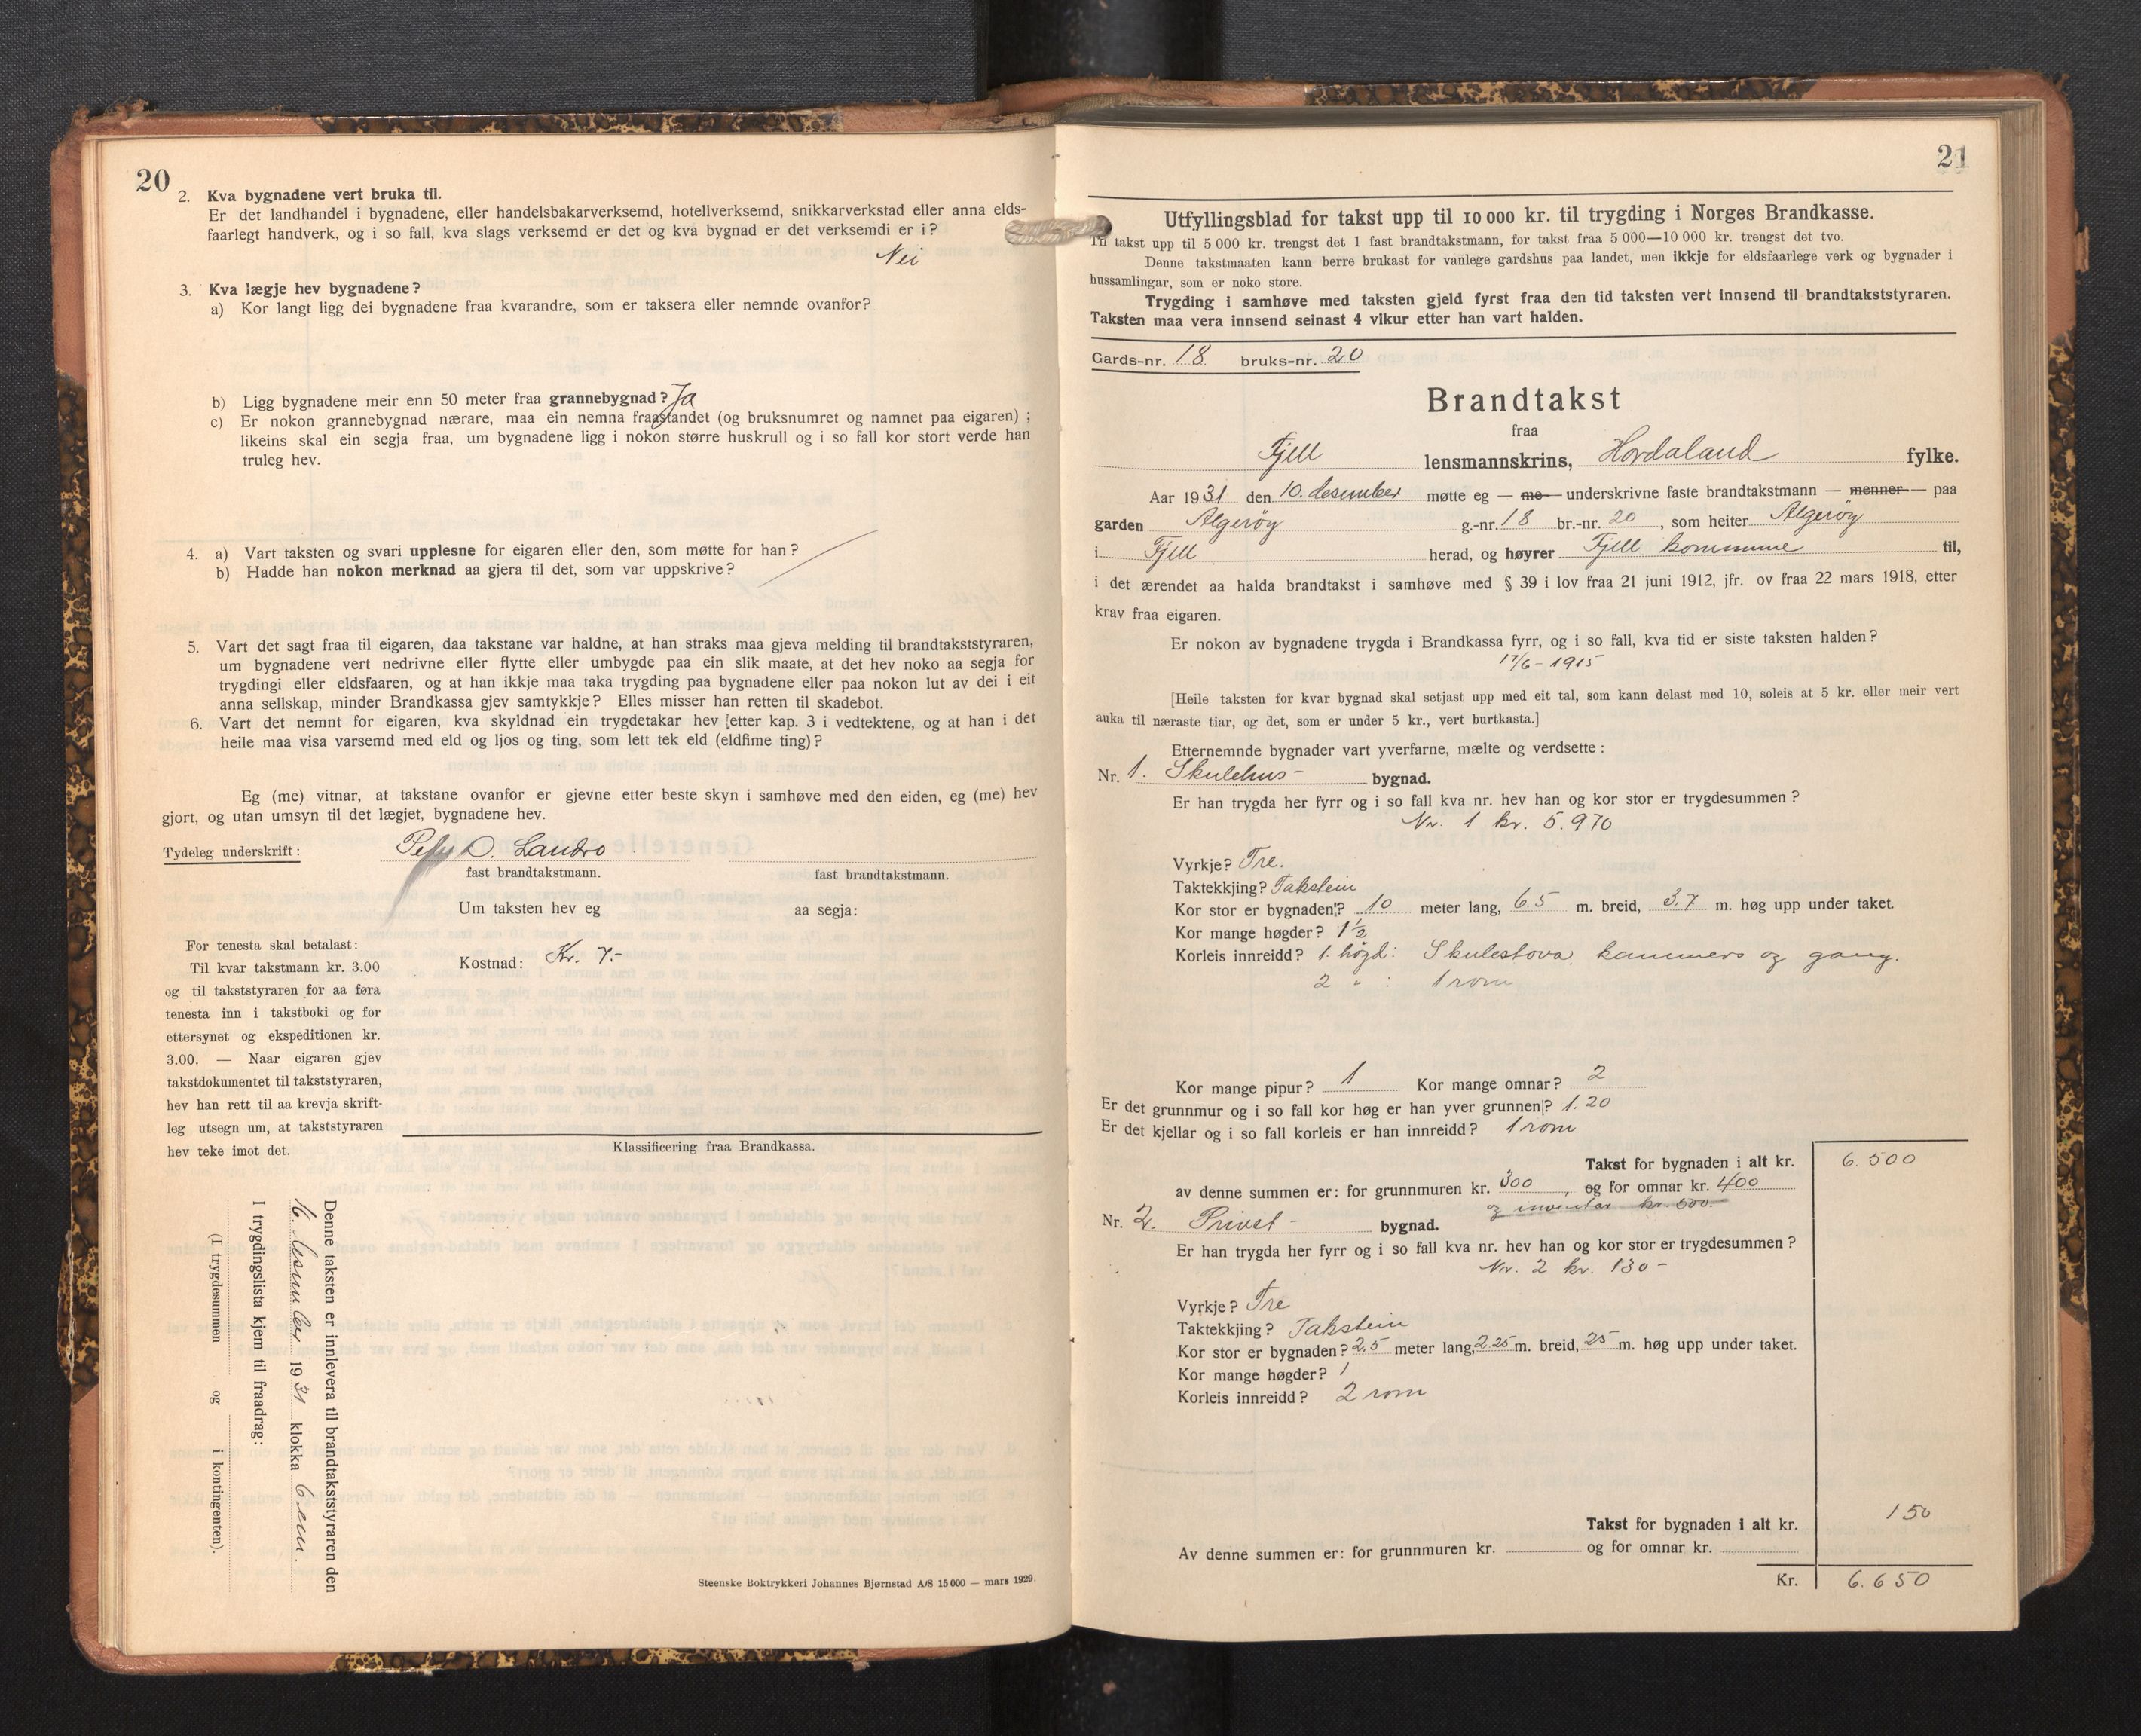 20
2. Kva bygnadene vert bruka til.
Er det landhandel i bygnadene, eller handelsbakarverksemd, hotellverksemd, snikkarverkstad eller anna elds-
faarlegt handverk, og i so fall, kva slags verksemd er det og kva bygnad er det verksemdi er i?
Nei
3. Kva lægje hev bygnadene?
a) Kor langt ligg dei bygnadene fraa kvarandre, som er taksera eller nemnde ovanfor?
b) Ligg bygnadene meir enn 50 meter fraa grannebygnad? Ja
c) Er nokon grannebygnad nærare, maa ein nemna fraastandet (og bruksnumret og namnet paa eigaren) ;
likeins skal ein segja fraa, um bygnadene ligg i nokon større huskrull og i so fall kor stort verde han
truleg hev.
4. a) Vart taksten og svari upplesne for eigaren eller den, som møtte for han?
b) Hadde han nokon merknad aa gjera til det, som var uppskrive?
5. Vart det sagt fraa til eigaren, daa takstane var haldne, at han straks maa gjeva melding til brandtakststyraren,
um bygnadene vert nedrivne eller flytte eller umbygde paa ein slik maate, at det hev noko aa segja for
trygdingi eller eldsfaaren, og at han ikkje maa taka trygding paa bygnadene eller paa nokon lut av dei i eit
anna sellskap, minder Brandkassa gjev samtykkje? Elles misser han retten til skadebot.
6. Vart det nemnt for eigaren, kva skyldnad ein trygdetakar hev [etter kap. 3 i vedtektene, og at han i det
heile maa visa varsemd med eld og ljos og ting, som lett tek eld (eldfime ting)?
Eg (me) vitnar, at takstane ovanfor er gjevne etter beste skyn i samhøve med den eiden, eg (me) hev
gjort, og utan umsyn til det lægjet, bygnadene hev.
Tydeleg underskrift: D. Landro
fast brandtakstmann. fast brandtakstmann.
Um taksten hev eg aa segja:
Kostnad: Kr. 7.-
For tenesta skal betalast:
Til kvar takstmann kr. 3.00
og til takststyraren for aa føra
tenesta inn i takstboki og for
ettersynet og ekspeditionen kr.
3.00. — Naar eigaren gjev
takstdokumentet til takststyraren,
hev han rett til aa krevja skrift-
leg utsegn um, at takststyraren
hev teke imot det.
Klassificering fraa Brandkassa.
Denne taksten er innlevera til brandtakststyraren den
16. desember 1931 klokka 6 em.
I trygdingslista kjem til fraadrag:
(I trygdesummen og i kontingenten).
Steenske Boktrykkeri Johannes Bjørnstad A/S 15 000 — mars 1929.
21
Utfyllingsblad for takst upp til 10 000 kr. til trygding i Norges Brandkasse.
Til takst upp til 5 000 kr. trengst det 1 fast brandtakstmann, for takst fraa 5 000—10 000 kr. trengst det tvo.
Denne takstmaaten kann berre brukast for vanlege gardshus paa landet, men ikkje for eldsfaarlege verk og bygnader i
hussamlingar, som er noko store.
Trygding i samhøve med taksten gjeld fyrst fraa den tid taksten vert innsend til brandtakststyraren.
Taksten maa vera innsend seinast 4 vikur etter han vart halden.
Gards-nr. 18 bruks-nr. 20
Brandtakst
fraa
Fjell lensmannskrins, Hordaland fylke.
Aar 1931 den 10. desember møtte eg — me — underskrivne faste brandtakstmann — menner — paa
garden Algerøy g.-nr. 18 br.-nr. 20, som heiter Algerøy
i Fjell herad, og høyrer Fjell kommune til,
i det ærendet aa halda brandtakst i samhøve med § 39 i lov fraa 21 juni 1912, jfr. ov fraa 22 mars 1918, etter
krav fraa eigaren.
Er nokon av bygnadene trygda i Brandkassa fyrr, og i so fall, kva tid er siste taksten halden?
17/6 - 1915
[Heile taksten for kvar bygnad skal setjast upp med eit tal, som kann delast med 10, soleis at 5 kr. eller meir vert
auka til næraste tiar, og det, som er under 5 kr., vert burtkasta.]
Etternemnde bygnader vart yverfarne, mælte og verdsette :
Nr. 1. Skulehus- bygnad.
Er han trygda her fyrr og i so fall kva nr. hev han og kor stor er trygdesummen?
Nr. 1 kr. 5.970
Vyrkje? Tre.
Taktekkjing? Takstein
Kor stor er bygnaden? 10 meter lang, 6.5 m. breid, 3,7 m. høg upp under taket.
Kor mange høgder? 1 1/2
Korleis innreidd? 1. høgd: Skulestova, kammers og gang.
2 " : 1 rom
Kor mange pipur? 1 Kor mange omnar? 2
Er det grunnmur og i so fall kor høg er han yver grunnen? 1.20
Er det kjellar og i so fall korleis er han innreidd? 1 rom
Takst for bygnaden i alt kr. 6.500
av denne summen er: for grunnmuren kr. 300, og for omnar kr. 400
og inventar kr. 500.
Nr. 2. Privet- bygnad.
Er han trygda her fyrr og i so fall kva nr. hev han og kor stor er trygdesummen?
Nr. 2 kr. 130-
Vyrkje? Tre
Taktekkjing? Takstein
Kor stor er bygnaden? 2,5 meter lang, 2.25 m. breid, 25 m. høg upp under taket.
Kor mange høgder? 1
Korleis innreidd? 2 rom
Takst for bygnaden i alt kr. 150
Av denne summen er: for grunnmuren kr. og for omnar kr.
Kr. 6.650